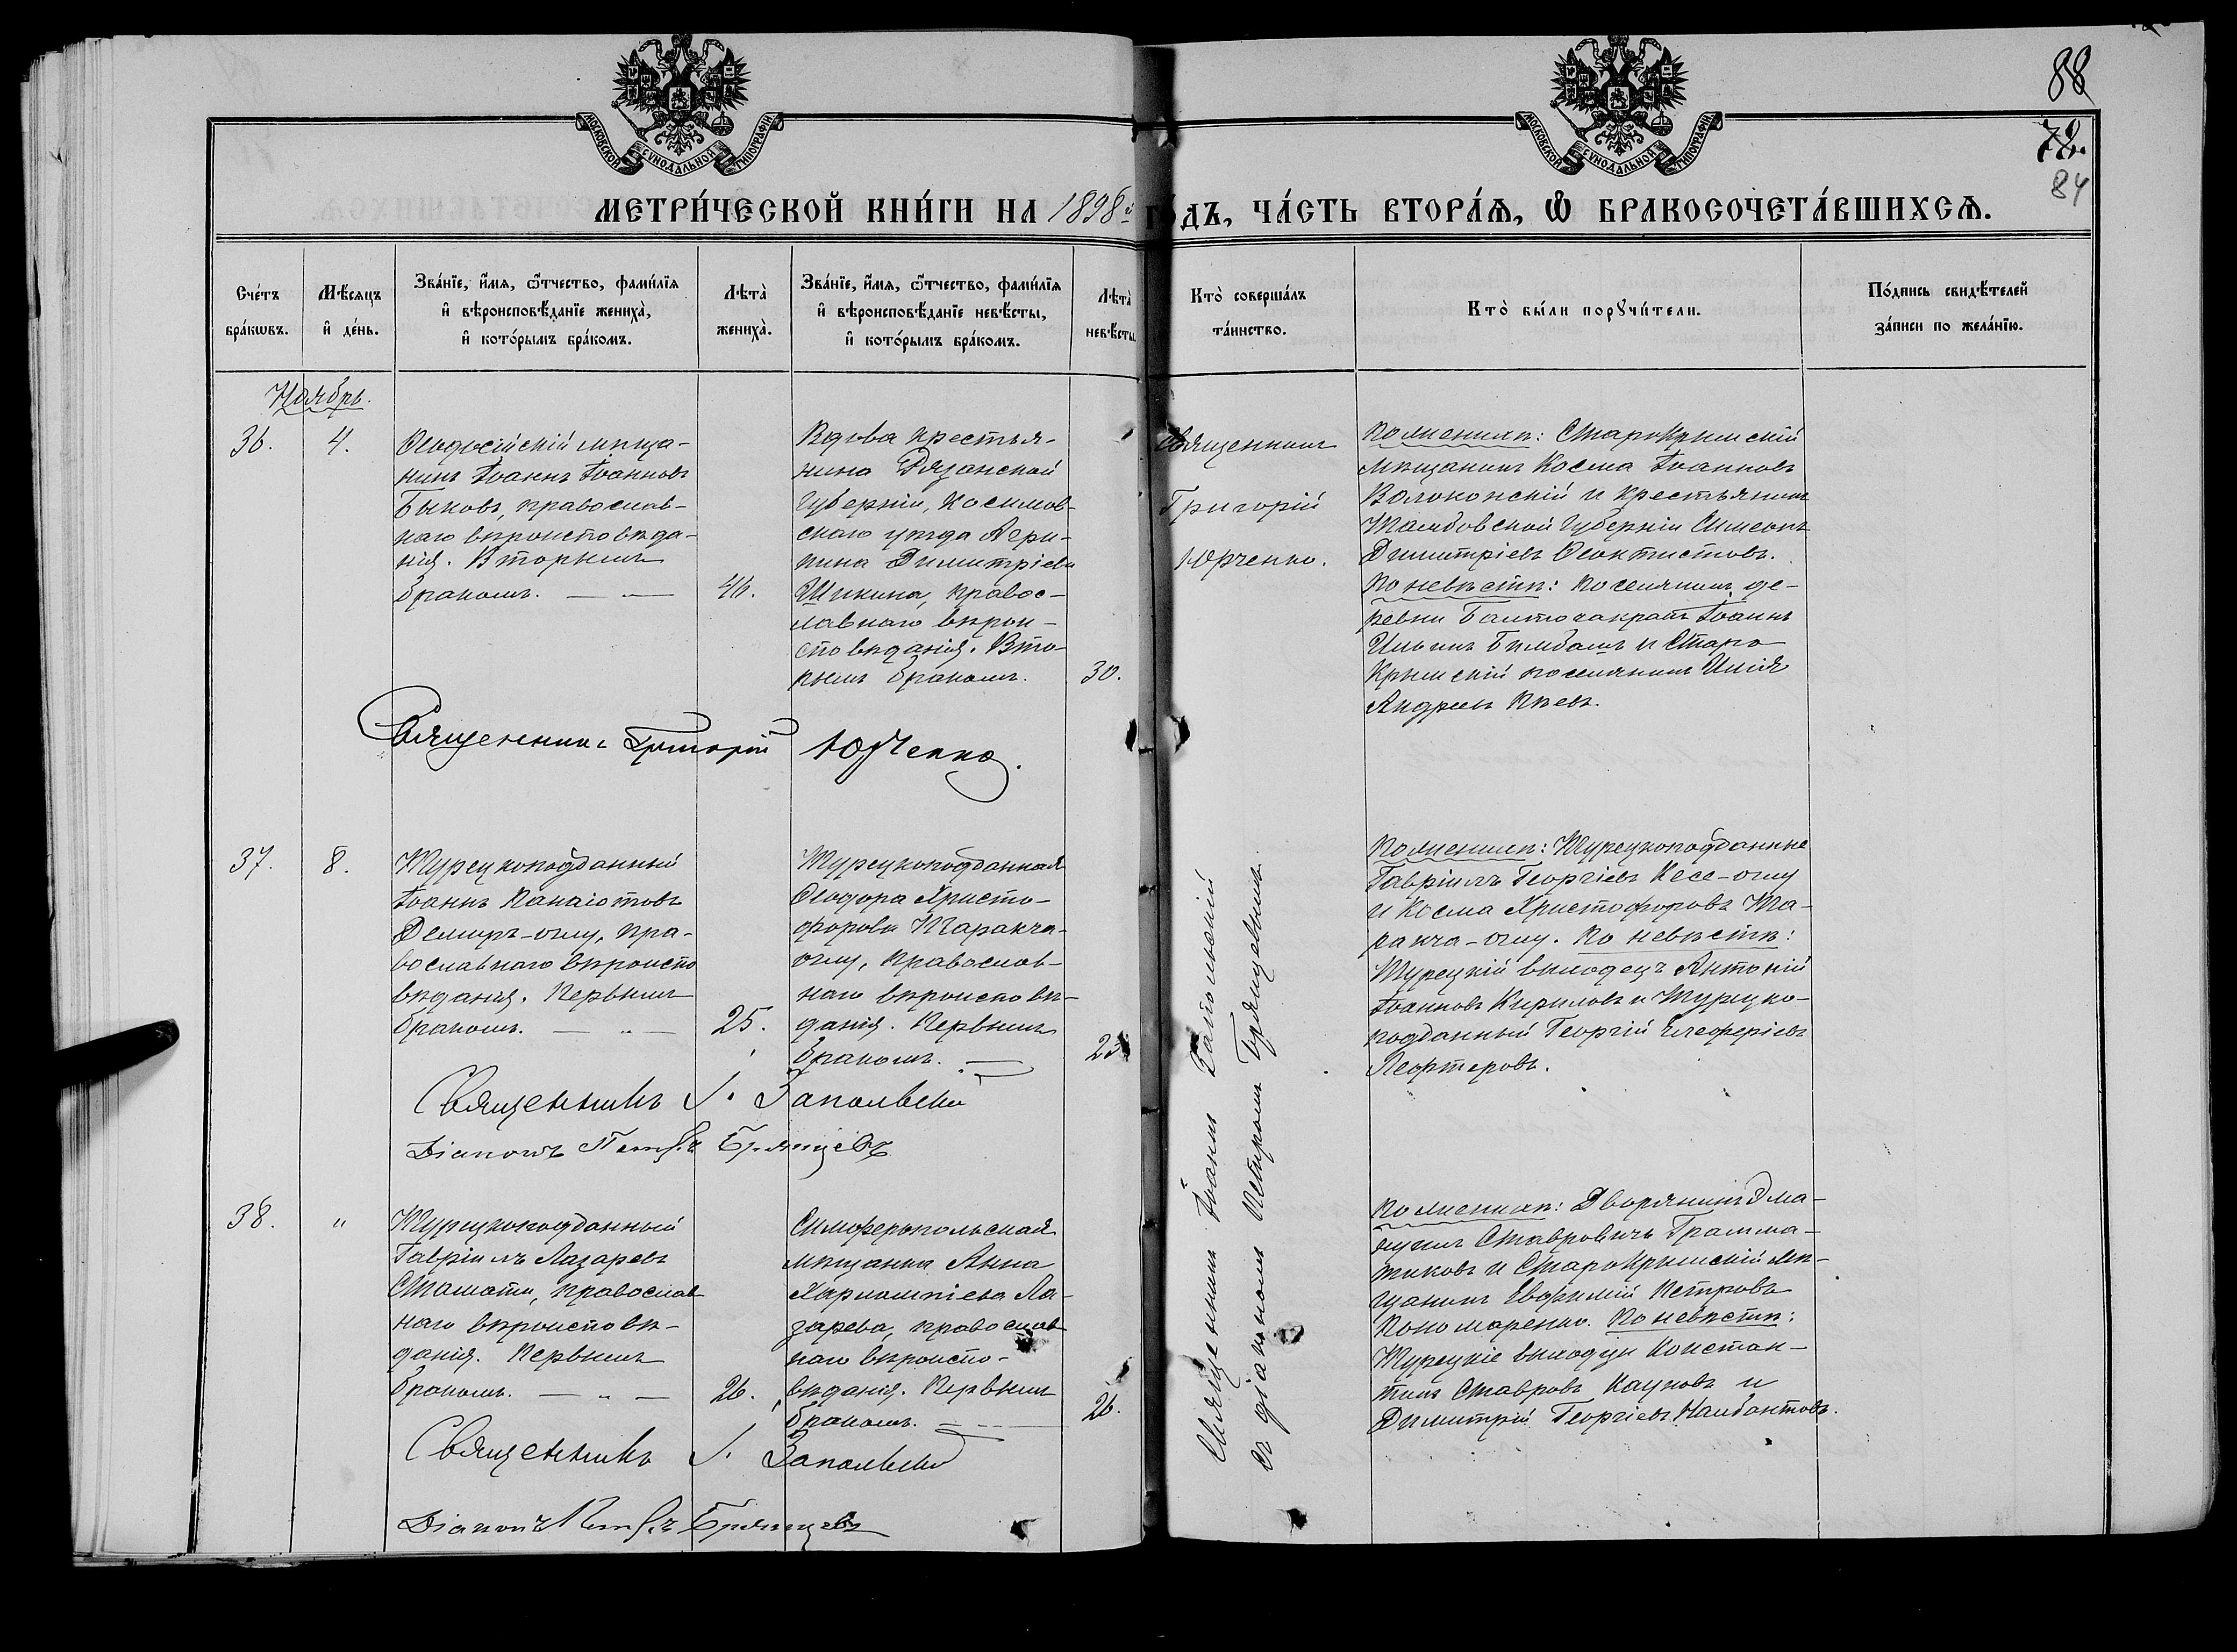 МОСКОВСКОЙ СѴНОДАЛЬНОЙ ТИПОГРАФІИ
МОСКОВСКОЙ СѴНОДАЛЬНОЙ ТИПОГРАФІИ
88
78.
84
МЕТРИ́ЧЕСКОЙ КНИ́ГИ НА 1898й ГО́ДЪ, ЧА́СТЬ ВТОРА́Ѧ, Ѡ БРАКОСОЧЕТА́ВШИХСѦ.
Сче́тъ бра́кѡвъ.
Мѣ́сяцъ и҆ де́нь.
Зва́нїе, и҆́мя, ѻ҆́тчество, фами́лїя и҆ вѣроисповѣ́данїе жениха̀, и҆ кото́рымъ бра́комъ.
Лѣта̀ жениха̀.
Зва́нїе, и҆́мя, ѻ҆́тчество, фами́лїя и҆ вѣроисповѣ́данїе невѣ́сты, и҆ кото́рымъ бра́комъ.
Лѣта̀ невѣ́сты.
Кто̀ соверша́лъ та́инство.
Кто̀ бы́ли порꙋчи́тели.
По́дпись свидѣ́телей за́писи по жела́нїю.
Ноябрь.
36.
4.
Ѳеодосійскій мѣща-
нинъ Іоаннъ Іоанновъ
Быковъ, православ-
наго вѣроисповѣда-
нія. Вторымъ
бракомъ. — „ —
46.
Вдова крестья-
нина Рязанской
Губерніи, Касимов-
скаго уѣзда Агри-
пина Димитріева
Шикина, правос-
лавнаго вѣрои-
сповѣданія. Вто-
рымъ бракомъ.
30.
Священникъ
Григорій
Юрченко.
По женихѣ: СтароКрымскій
мѣщанинъ Косма Іоанновъ
Волоконскій и крестьянинъ
Тамбовской Губерніи Симеонъ
Димитріевъ Ѳеоктистовъ.
По невѣстѣ: поселянинъ де-
ревни Іоаннъ
Ильинъ и Старо
Крымскій поселянинъ Илія
Андреевъ
Священникъ Григорій Юрченко.
37.
8.
Турецкоподданный
Іоаннъ Панаіотовъ
Демиръ-оглу, пра-
вославнаго вѣроиспо
вѣданія. Первымъ
бракомъ. — „ —
25.
Турецкоподданная
Ѳеодора Христо-
форова Таракча-
оглу, православ-
наго вѣроисповѣ-
данія. Первымъ
бракомъ. —
23
Священникъ Іоаннъ Запольскій
съ діакономъ Петромъ Брянцевымъ.
По женихѣ: Турецкоподданные
Гавріилъ Георгіевъ Кесе-оглу
и Косма Христофоровъ Та-
ракча-оглу. По невѣстѣ:
Турецкій выходецъ Антоній
Іоанновъ Кириловъ и Турецко-
подданный Георгій Елеферіевъ
Лефтеровъ.
Священникъ І. Запольскій
Діаконъ Петръ Брянцевъ
38.
„
Турецкоподданный
Гавріилъ Лазаревъ
Стамати, православ
наго вѣроисповѣ-
данія. Первымъ
бракомъ. — „ —
26.
Симферопольская
мѣщанка Анна
Харлампіева Ла-
зарева, православ
наго вѣроиспо-
вѣданія. Первымъ
бракомъ. —
26.
По женихѣ: Дворянинъ
Ставровичъ Грамма-
тиковъ и СтароКрымскій мѣ-
щанинъ Евфимій Петровъ
Пономаренко. По невѣстѣ:
Турецкіе выходцы Констан-
тинъ Ставровъ и
Димитрій Георгіевъ
Священникъ І. Запольскій
Діаконъ Петръ Брянцевъ